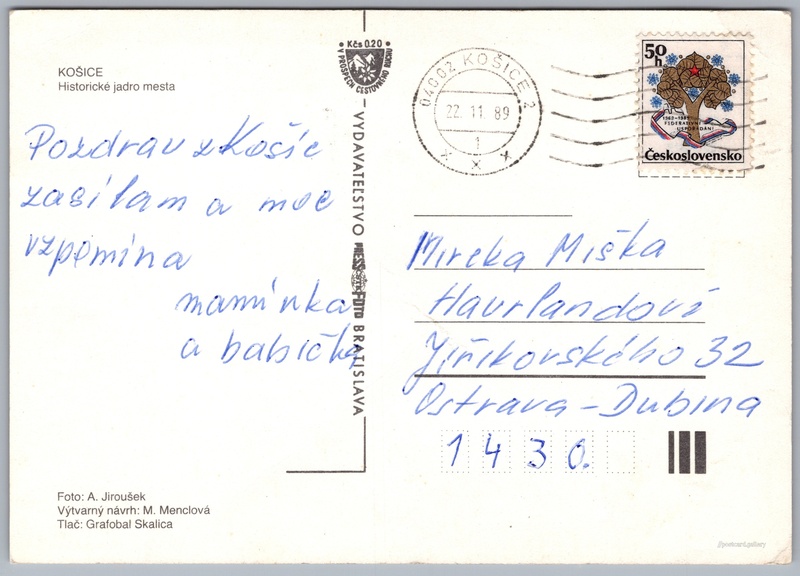 KOŠICE
Historické jadro mesta
Pozdrav z Košic
zasílam a moc
vzpomína
maminka
a babička
Foto: A. Jiroušek
Výtvarný návrh: M. Menclová
Tlač: Grafobal Skalica
Kčs 0.20
V PROSPECH CESTOVNÉHO RUCHU
VYDAVATEĽSTVO PRESSFOTO BRATISLAVA
04002 KOŠICE 2
22.11.89
1
50
h
1968-1988
FEDERATIVNÍ
USPOŘÁDÁNÍ
Československo
Mirka Miška
Havrlandoví
Jiříkovského 32
Ostrava-Dubina
1430.
postcard.gallery